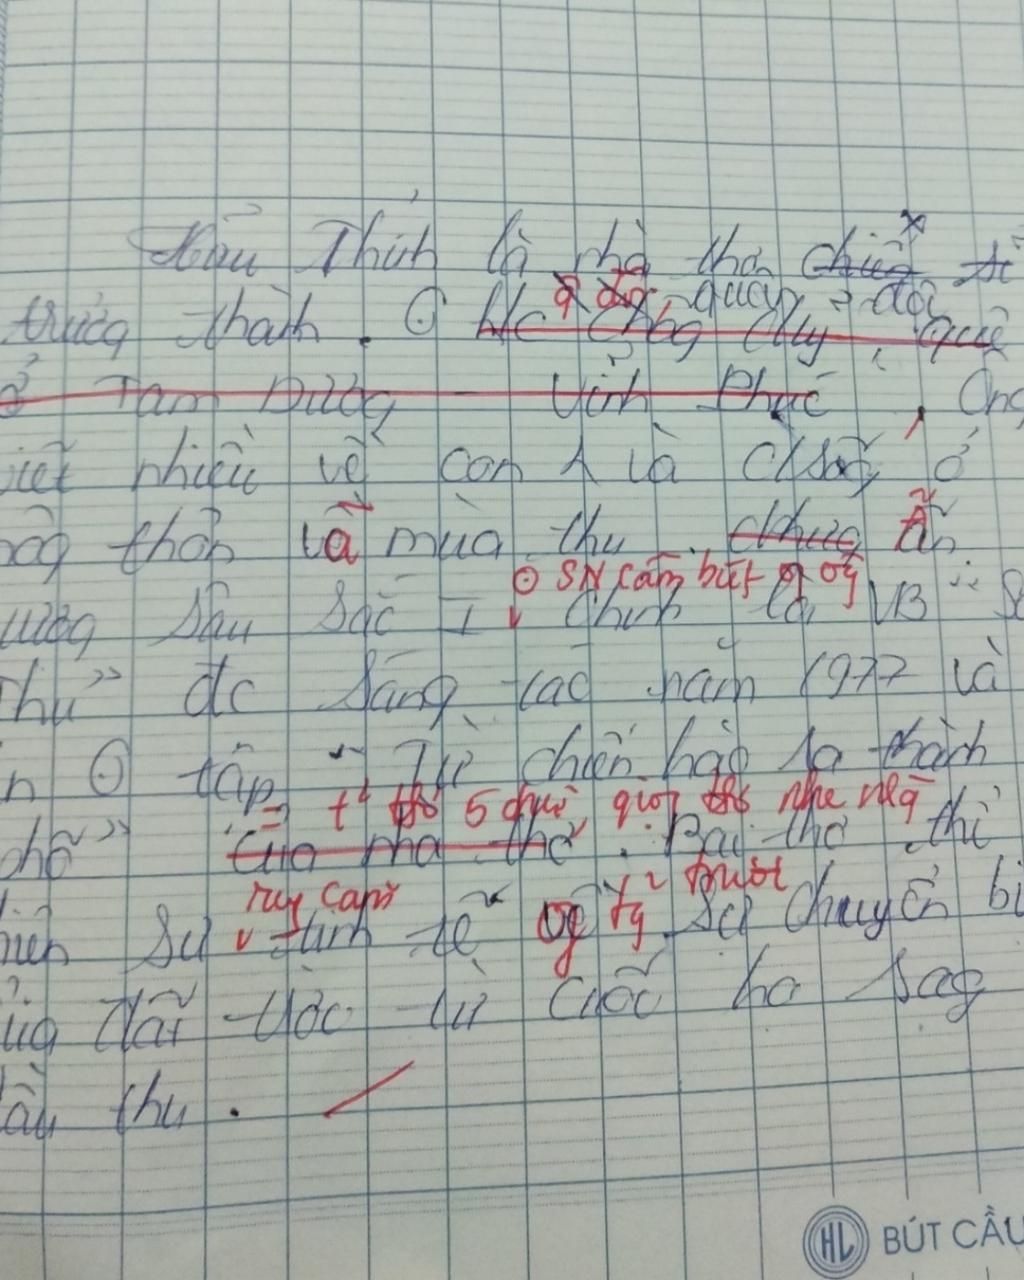 Hữu Thỉnh là nhà thơ chiến
q đội quân đội
trưởng thành. Ở k/c chống Mỹ, quê
ở Tam Dương - Vĩnh Phúc, Ông
viết nhiều về con người và c/sống ở
nông thôn và mùa thu. chung Ẩn
SN cảm bút of ông
tượng sâu sắc I chính là VB "Sang
Thu" đc sáng tác năm 1977 và
in ⊙ tập "Từ chiến hào ra thành
= t² thơ 5 chữ, giọng thơ nhẹ nhàng
phố" của nhà thơ. Bài thơ thể
rung cảm ông tg² trước
hiện sự tinh tế sự chuyển biến
của đất trời từ cuối hạ sang
đầu thu.
HL BÚT CẦU